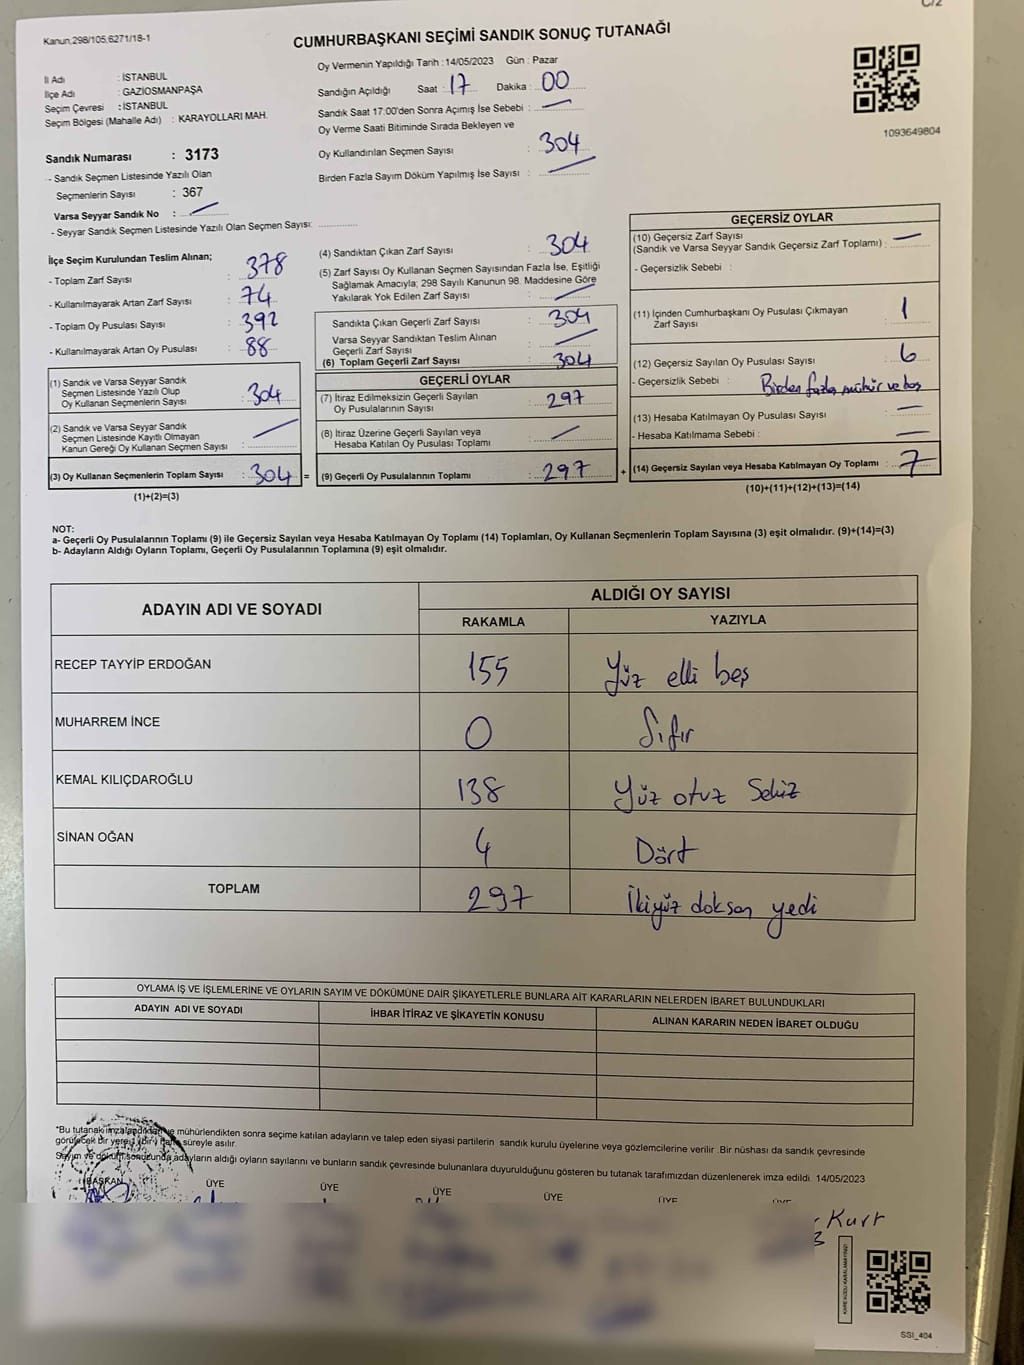 C/2
Kanun,298/105,6271/18-1
CUMHURBAŞKANI SEÇİMİ SANDIK SONUÇ TUTANAĞI
İl Adı : İSTANBUL
İlçe Adı : GAZİOSMANPAŞA
Seçim Çevresi : İSTANBUL
Seçim Bölgesi (Mahalle Adı) : KARAYOLLARI MAH.
Sandık Numarası : 3173
- Sandık Seçmen Listesinde Yazılı Olan
Seçmenlerin Sayısı : 367
Varsa Seyyar Sandık No :
- Seyyar Sandık Seçmen Listesinde Yazılı Olan Seçmen Sayısı:
Oy Vermenin Yapıldığı Tarih : 14/05/2023 Gün : Pazar
Sandığın Açıldığı Saat : 17 Dakika : 00
Sandık Saat 17:00'den Sonra Açımış İse Sebebi :
Oy Verme Saati Bitiminde Sırada Bekleyen ve
Oy Kullandırılan Seçmen Sayısı : 304
Birden Fazla Sayım Döküm Yapılmış İse Sayısı :
1093649804
İlçe Seçim Kurulundan Teslim Alınan;
- Toplam Zarf Sayısı : 378
- Kullanılmayarak Artan Zarf Sayısı : 74
- Toplam Oy Pusulası Sayısı : 392
- Kullanılmayarak Artan Oy Pusulası : 88
(1) Sandık ve Varsa Seyyar Sandık
Seçmen Listesinde Yazılı Olup
Oy Kullanan Seçmenlerin Sayısı : 304
(2) Sandık ve Varsa Seyyar Sandık
Seçmen Listesinde Kayıtlı Olmayan
Kanun Gereği Oy Kullanan Seçmen Sayısı :
(3) Oy Kullanan Seçmenlerin Toplam Sayısı : 304 =
(1)+(2)=(3)
(4) Sandıktan Çıkan Zarf Sayısı : 304
(5) Zarf Sayısı Oy Kullanan Seçmen Sayısından Fazla İse, Eşitliği
Sağlamak Amacıyla; 298 Sayılı Kanunun 98. Maddesine Göre
Yakılarak Yok Edilen Zarf Sayısı :
Sandıkta Çıkan Geçerli Zarf Sayısı : 304
Varsa Seyyar Sandıktan Teslim Alınan
Geçerli Zarf Sayısı :
(6) Toplam Geçerli Zarf Sayısı : 304
GEÇERLİ OYLAR
(7) İtiraz Edilmeksizin Geçerli Sayılan
Oy Pusulalarının Sayısı : 297
(8) İtiraz Üzerine Geçerli Sayılan veya
Hesaba Katılan Oy Pusulası Toplamı :
(9) Geçerli Oy Pusulalarının Toplamı : 297 +
GEÇERSİZ OYLAR
(10) Geçersiz Zarf Sayısı
(Sandık ve Varsa Seyyar Sandık Geçersiz Zarf Toplamı) :
- Geçersizlik Sebebi :
(11) İçinden Cumhurbaşkanı Oy Pusulası Çıkmayan
Zarf Sayısı : 1
(12) Geçersiz Sayılan Oy Pusulası Sayısı : 6
- Geçersizlik Sebebi : Birden fazla mühür ve boş
(13) Hesaba Katılmayan Oy Pusulası Sayısı :
- Hesaba Katılmama Sebebi :
(14) Geçersiz Sayılan veya Hesaba Katılmayan Oy Toplamı : 7
(10)+(11)+(12)+(13)=(14)
NOT:
a- Geçerli Oy Pusulalarının Toplamı (9) ile Geçersiz Sayılan veya Hesaba Katılmayan Oy Toplamı (14) Toplamları, Oy Kullanan Seçmenlerin Toplam Sayısına (3) eşit olmalıdır. (9)+(14)=(3)
b- Adayların Aldığı Oyların Toplamı, Geçerli Oy Pusulalarının Toplamına (9) eşit olmalıdır.
ADAYIN ADI VE SOYADI ALDIĞI OY SAYISI
RAKAMLA YAZIYLA
RECEP TAYYİP ERDOĞAN 155 Yüz elli beş
MUHARREM İNCE 0 Sıfır
KEMAL KILIÇDAROĞLU 138 Yüz otuz Sekiz
SİNAN OĞAN 4 Dört
TOPLAM 297 İkiyüz doksan yedi
OYLAMA İŞ VE İŞLEMLERİNE VE OYLARIN SAYIM VE DÖKÜMÜNE DAİR ŞİKAYETLERLE BUNLARA AİT KARARLARIN NELERDEN İBARET BULUNDUKLARI
ADAYIN ADI VE SOYADI İHBAR İTİRAZ VE ŞİKAYETİN KONUSU ALINAN KARARIN NEDEN İBARET OLDUĞU
*Bu tutanak imzalandıktan ve mühürlendikten sonra seçime katılan adayların ve talep eden siyasi partilerin sandık kurulu üyelerine veya gözlemcilerine verilir .Bir nüshası da sandık çevresinde
görülecek bir yere 1 (Bir) hafta süreyle asılır.
Sayım ve döküm sonucunda adayların aldığı oyların sayılarını ve bunların sandık çevresinde bulunanlara duyurulduğunu gösteren bu tutanak tarafımızdan düzenlenerek imza edildi. 14/05/2023
BAŞKAN ÜYE ÜYE ÜYE ÜYE ÜYE ÜYE
Kurt
3
SSI_404